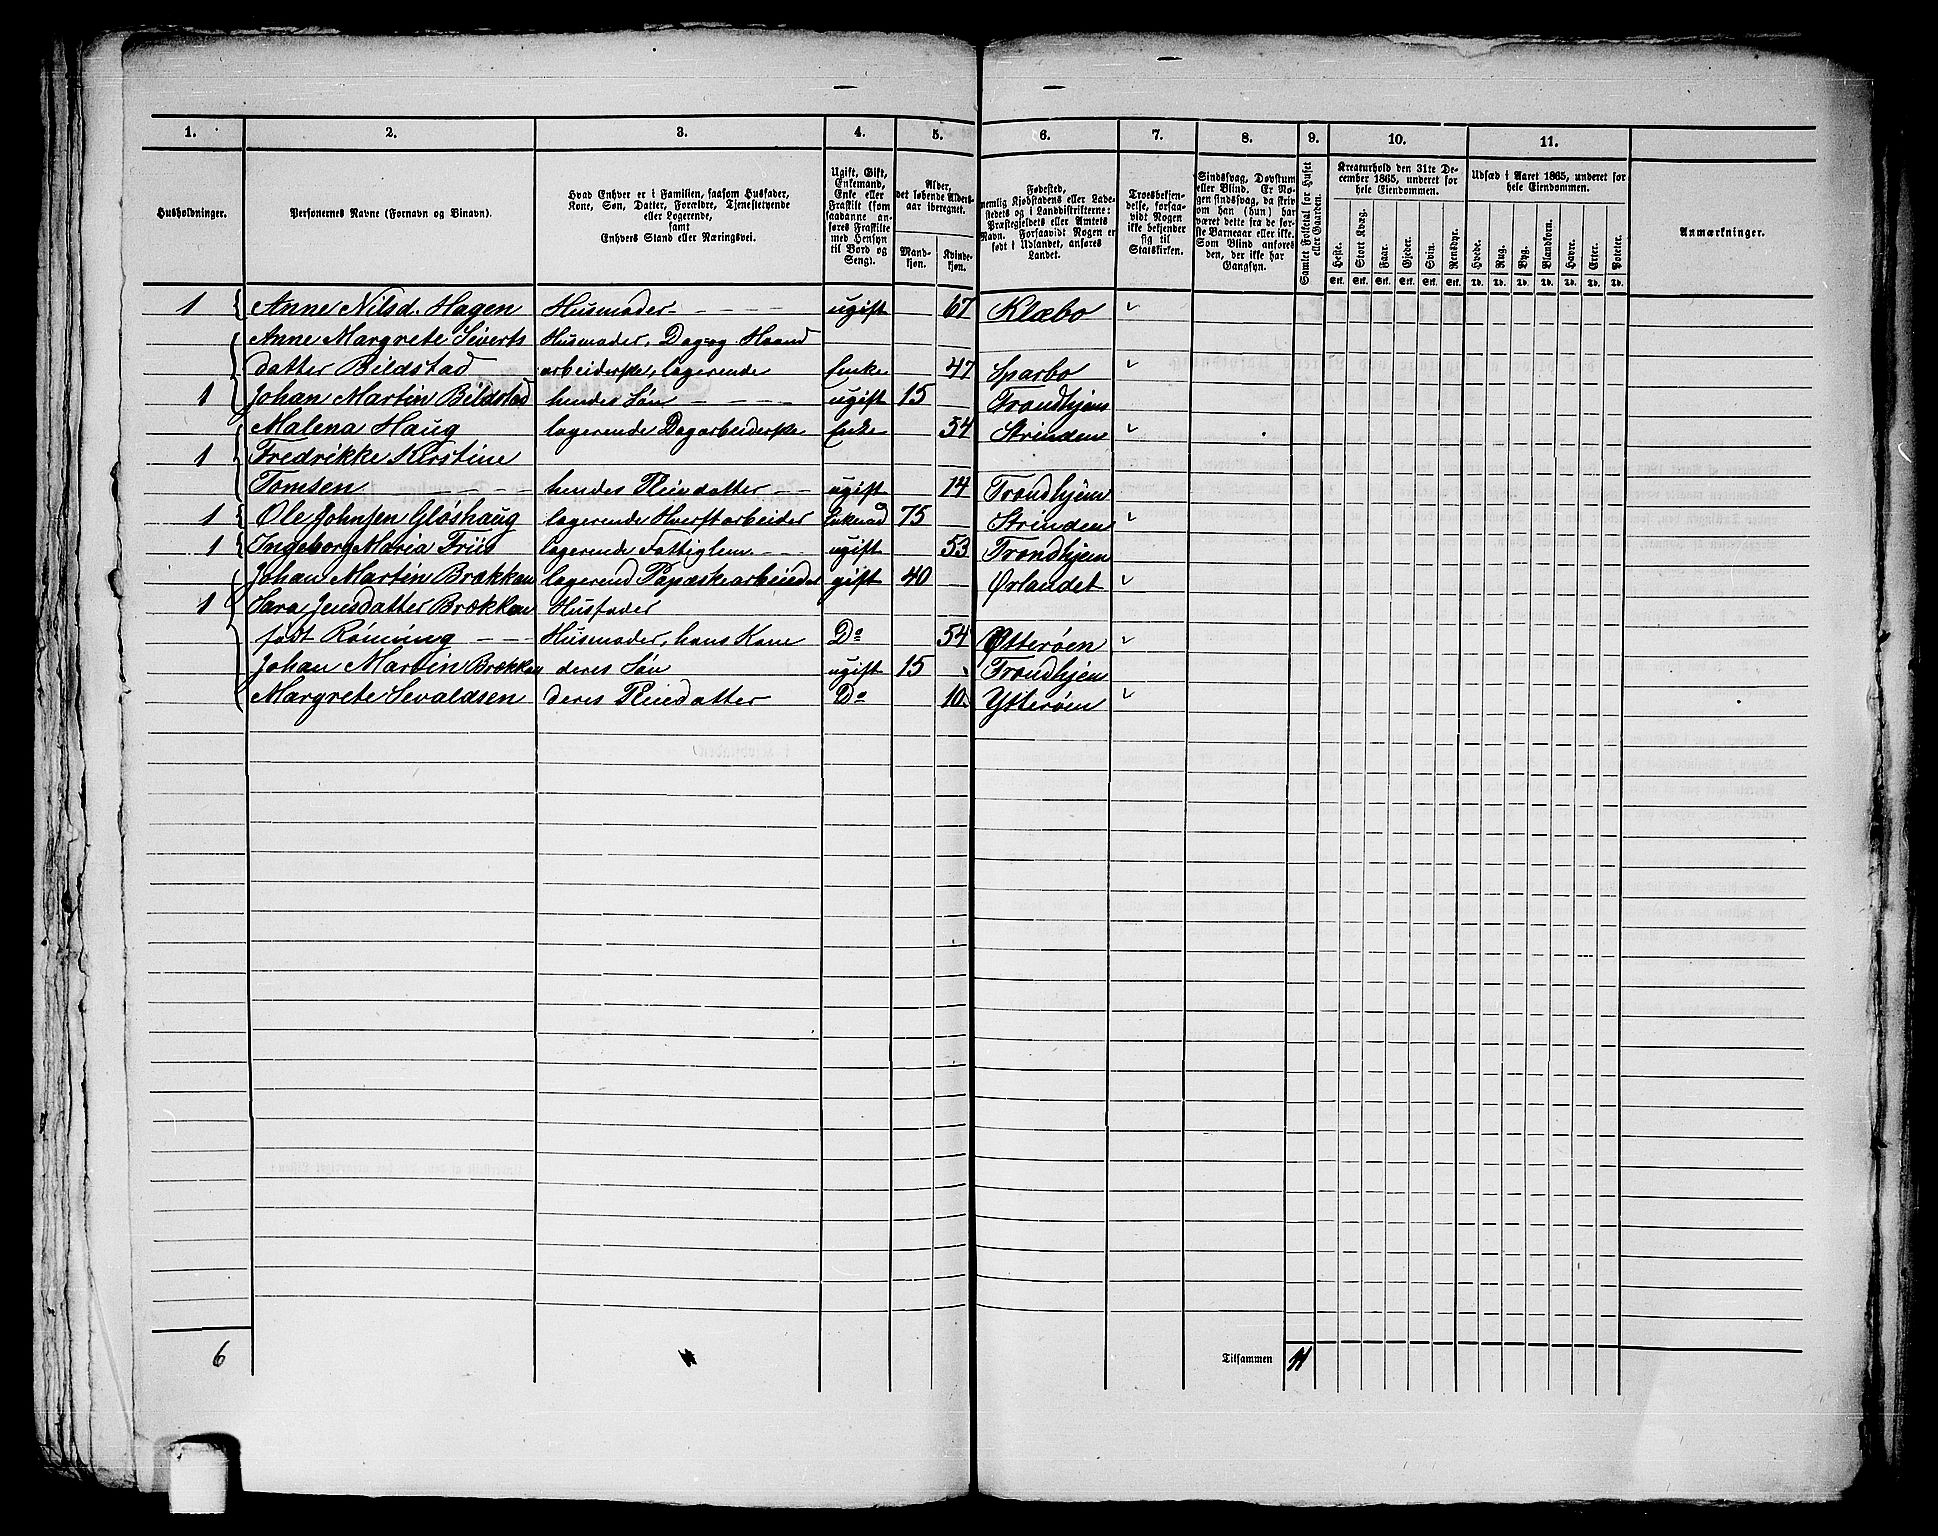 1. 2. 3. 4. 5. 6. 7. 8. 9. 10. 11.
Husholdninger.
Personernes Navne (Fornavn og Binavn).
Hvad Enhver er i Familien, saasom Husfader,
Kone, Søn, Datter, Forældre, Tjenestetyende
eller Logerende,
samt
Enhvers Stand eller Næringsvei.
Ugift, Gift,
Enkemand,
Enke eller
Fraskilt (som
saadanne an-
føres Fraskilte
med Hensyn
til Bord og
Seng).
Alder,
det løbende Alders-
aar iberegnet.
Mand-
kjøn.
Kvinde-
kjøn.
Fødested,
nemlig Kjøbstadens eller Lade-
stedets og i Landdistrikterne:
Præstegjeldets eller Amtets
Navn. Forsaavidt Nogen er
født i Udlandet, anføres
Landet.
Troesbekjen-
delse, forsaa-
vidt Nogen
ikke bekjender
sig til
Statskirken.
Sindssvag, Døvstum
eller Blind. Er No-
gen sindssvag, da skriv
om han (hun) har
været dette fra de før-
ste Barneaar eller ikke.
Som Blind anføres
den, der ikke har
Gangsyn.
Samlet Folketal for Huset
eller Gaarden.
Kreaturhold den 31te De-
cember 1865, underet for
hele Eiendommen.
Heste. Stort Kvæg. Faar. Gjeder. Svin. Rensdyr.
Stk. Stk. Stk. Stk. Stk. Stk.
Udsæd i Aaret 1865, underet for
hele Eiendommen.
Hvede. Rug. Byg. Blandkorn. Havre. Erter. Poteter.
Td. Td. Td. Td. Td. Td. Td.
Anmærkninger.
1 Anne Nilsd. Hagen Husmoder ugift 67 Klæbo
Anne Margrete Siverts Husmoder, Dag og Haand
datter Bildstad arbeiderske, logerende Enke 47 Sparbo
1 Johan Martin Bildstad hendes Søn ugift 15 Trondhjem
Malena Haug logerende Dagarbeiderske Enke 54 Strinden
1 Fredrikke Kirstine
Tomsen hendes Pleiedatter ugift 14 Trondhjem
1 Ole Johnsen Gløshaug logerende Hverftarbeider Enkmd 75 Strinden
1 Ingeborg Maria Friis logerende Fattiglem ugift 53 Trondhjem
Johan Martin Brækken logerend gift 40 Ørlandet
1 Sara Jensdatter Brækken Husfader
født Rømming Husmoder, hans Kone Do 54 Ytterøen
Johan Martin Brækken deres Søn ugift 15 Trondhjem
Margrete Sevaldsen deres Pleiedatter Do 10 Ytterøen
6 Tilsammen 11